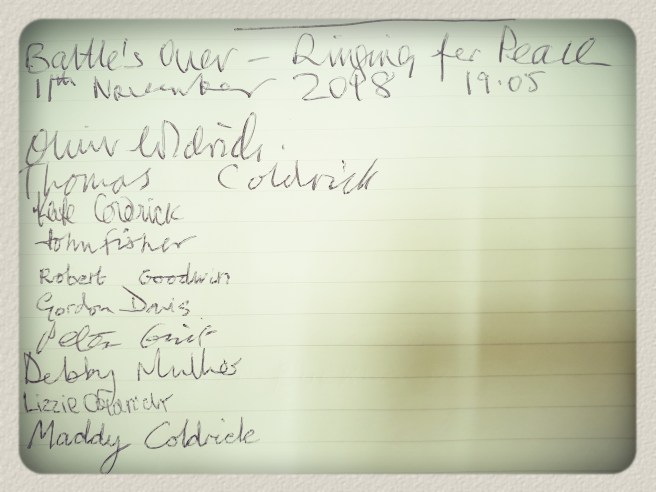 Battle's Over – Ringing for Peace
11th November 2018 19.05
Oliver Coldrick.
Thomas Coldrick
Kate Coldrick
John Fisher
Robert Goodwin
Gordon Davis
Peter
Debby Mulhes
Lizzie Coldrick
Maddy Coldrick